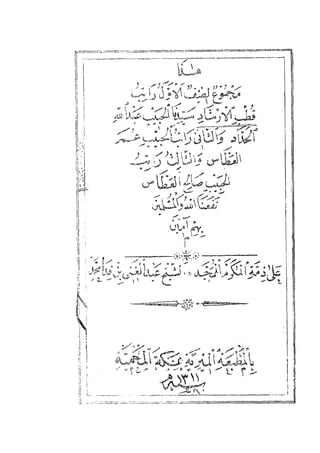 هذا
مجموع لطيف الاول راتب
قطب الارشاد سيدنا الحبيب عبد الله
الحداد والثاني راتب الحبيب عمر
العطاس والثالث راتب
الحبيب صالح العطاس
نفعنا الله والمسلمين
بهم آمين
على ذمة المكرم الشيخ عبد الغني بن
بالمطبعة الميرية بمكة المحمية
١٣١١